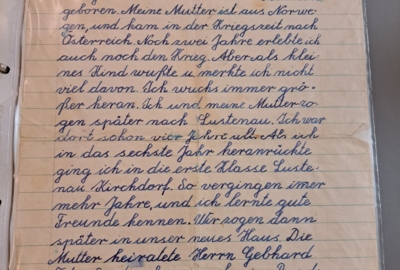 geboren. Meine Mutter ist aus Norwe-
gen, und kam in der Kriegszeit nach
Österreich. Noch zwei Jahre erlebte ich
auch noch den Krieg. Aber als klei-
nes Kind wußte u merkte ich nicht
viel davon. Ich wuchs immer grö-
ßer heran. Ich und meine Mutter zo-
gen später nach Lustenau. Ich war
dort schon vier Jahre alt. Als ich
in das sechste Jahr heranrückte
ging ich in die erste Klasse Luste-
nau Kirchdorf. So vergingen imer
mehr Jahre, und ich lernte gute
Freunde kennen. Wir zogen dann
später in unser neues Haus. Die
Mutter heiratete Herrn Gebhard